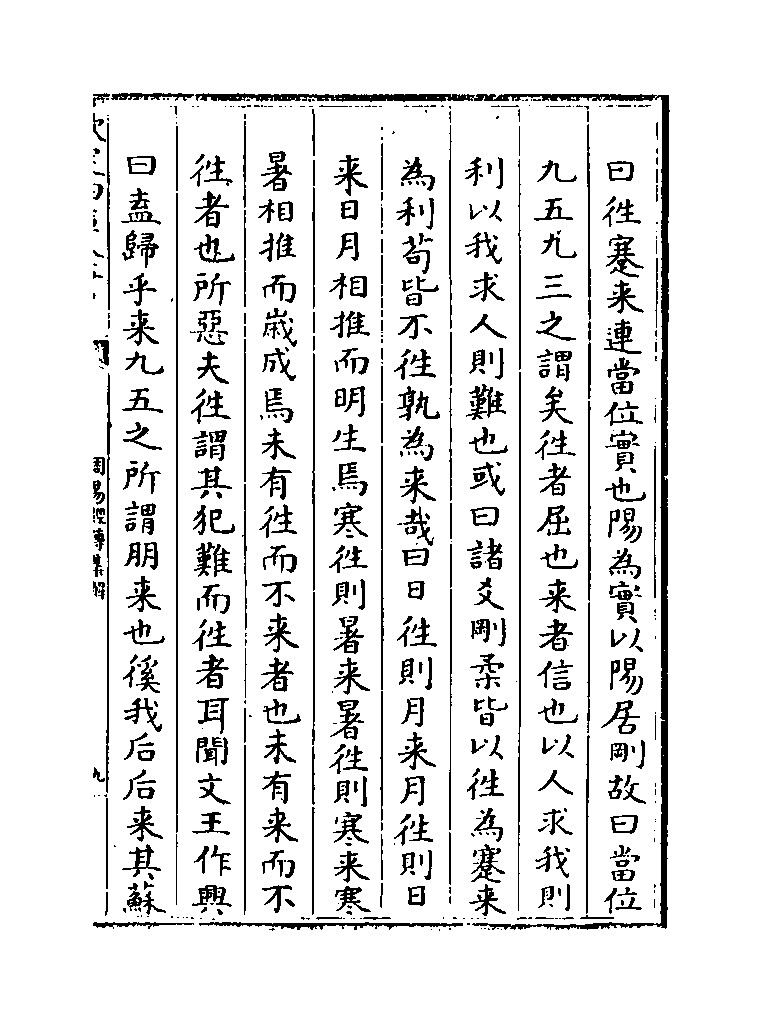 曰往蹇来連當位實也陽為實以陽居剛故曰當位
九五九三之謂矣往者屈也来者信也以人求我則
利以我求人則難也或曰諸爻剛柔皆以往為蹇来
為利苟皆不往孰為来哉曰日往則月来月往則日
来日月相推而明生焉寒往則暑来暑往則寒来寒
暑相推而嵗成焉未有往而不来者也未有来而不
往者也所惡夫往謂其犯難而往者耳聞文王作興
曰盍歸乎来九五之所謂朋来也徯我后后来其蘇
周易經傳集解
九